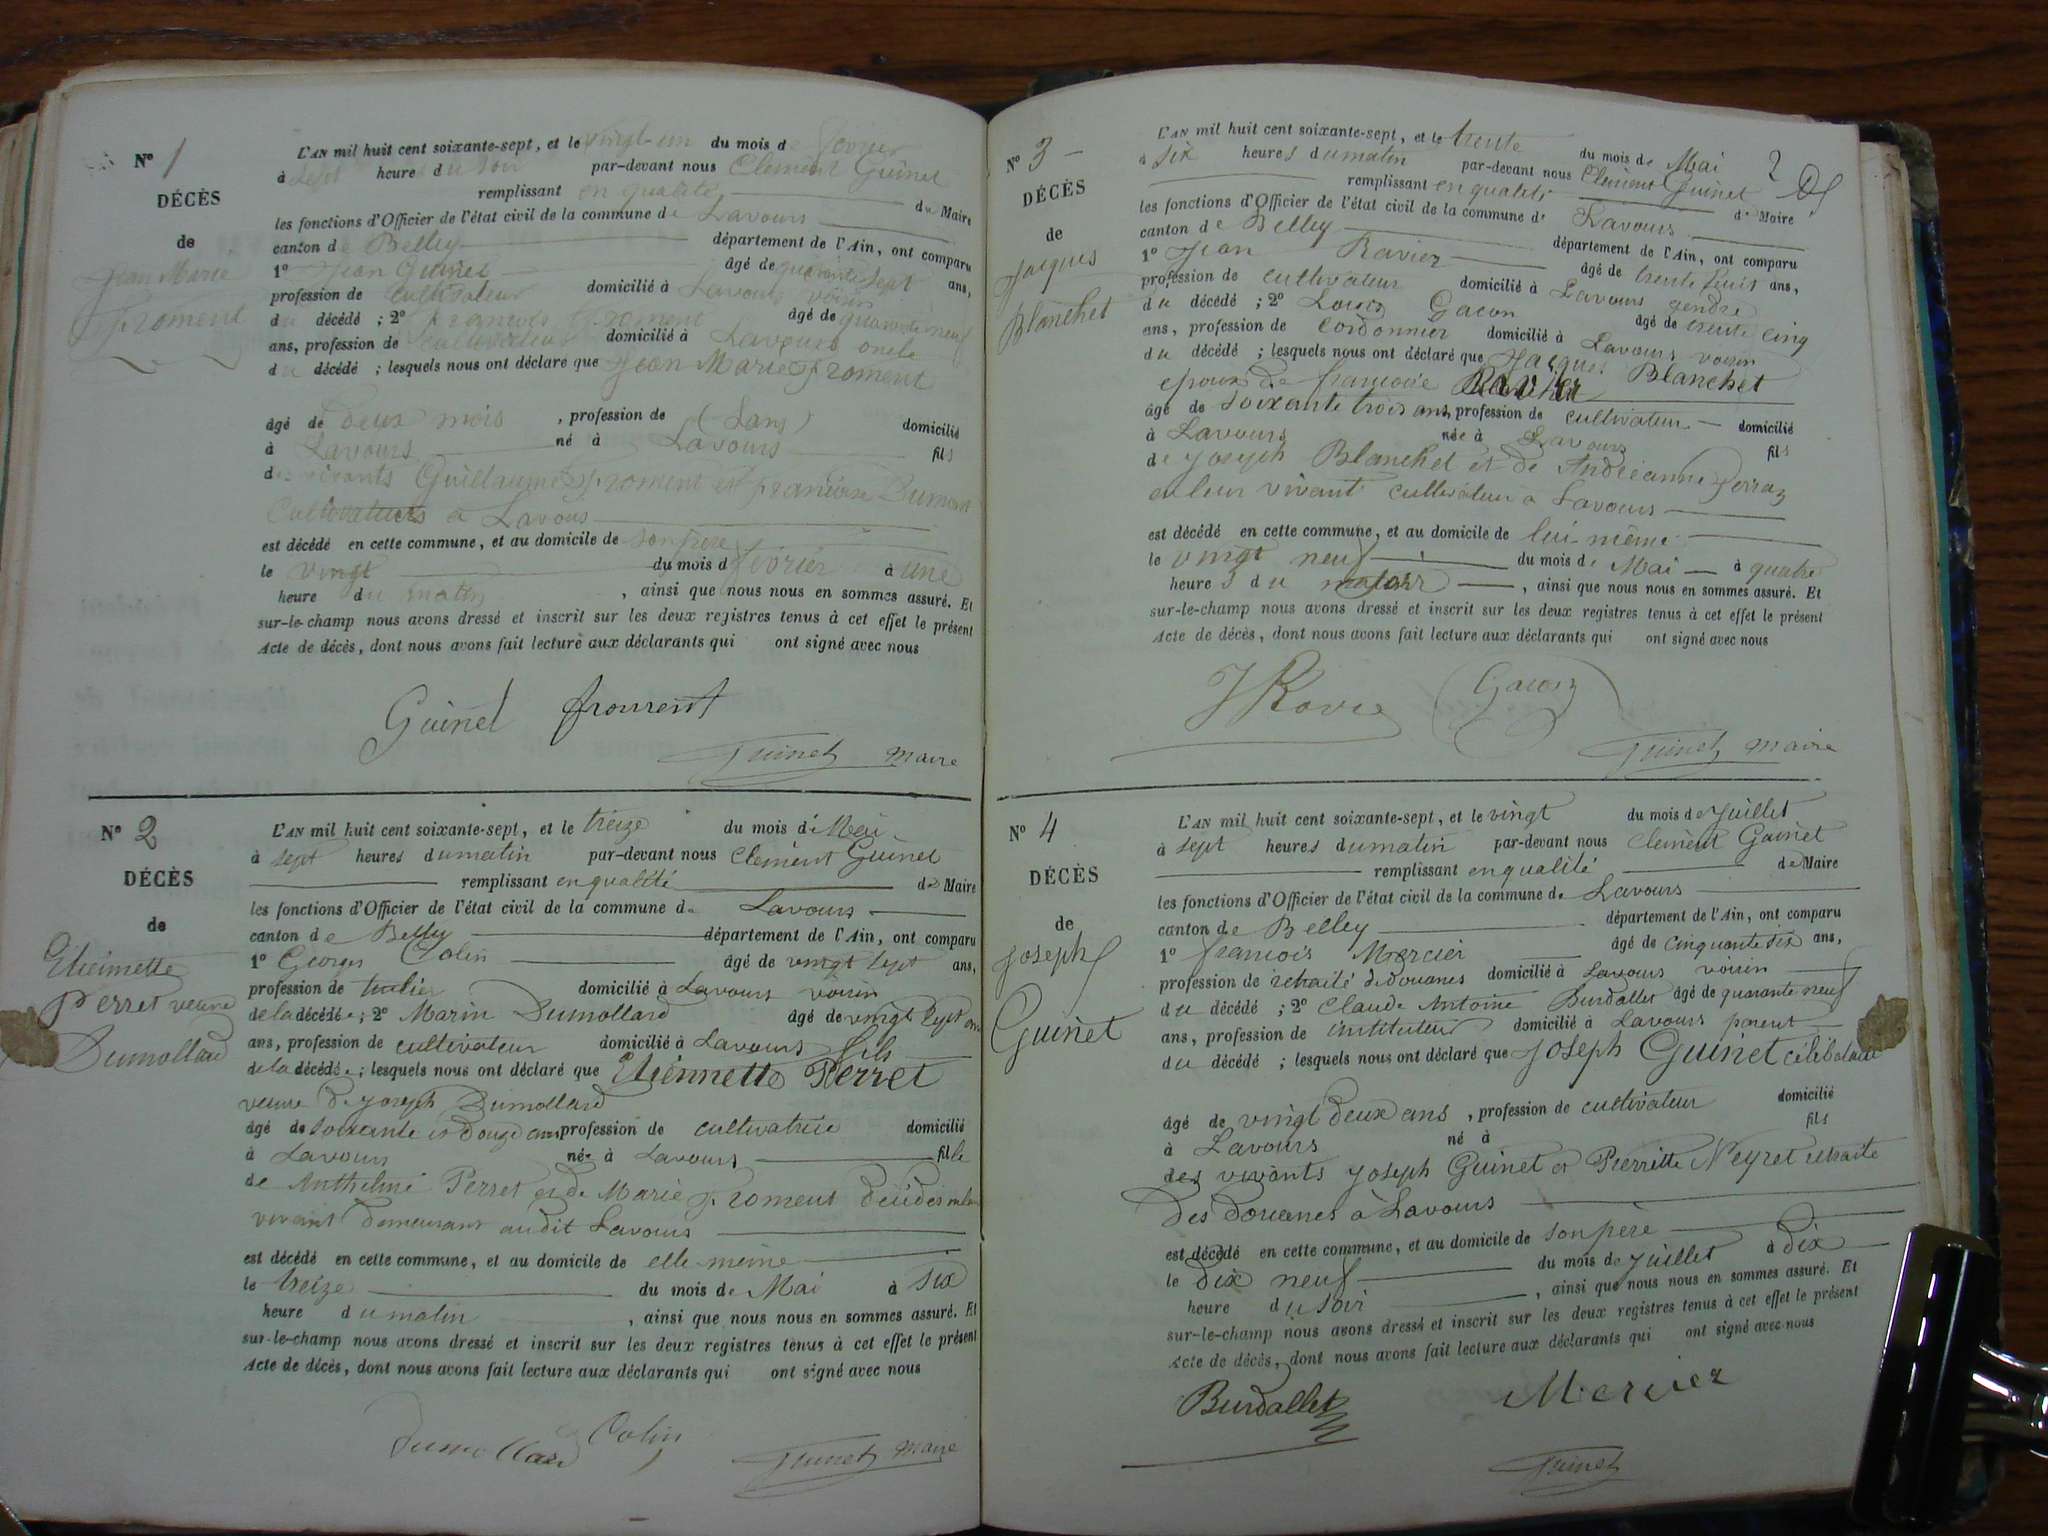 N° 1
DÉCÈS
de
Jean Marie
Froment
L'AN mil huit cent soixante-sept, et le vingt-un du mois de
à sept heure du soir par-devant nous Clement Guinet
remplissant en qualité de Maire
les fonctions d'Officier de l'état civil de la commune de Lavours
canton de Belley département de l'Ain, ont comparu
1° Jean Guinet âgé de quarante sept ans,
profession de cultivateur domicilié à Lavours voisin
du décédé ; 2° francois Froment âgé de quarante neuf
ans, profession de cultivateur domicilié à Lavours oncle
du décédé ; lesquels nous ont déclaré que Jean Marie Froment
âgé de deux mois , profession de (Sans) domicilié
à Lavours né à Lavours fils
des vivants Guillaume Froment et francoise Dumont
Cultivateurs a Lavous
est décédé en cette commune, et au domicile de son pere
le vingt du mois d fevrier à une
heure du matin , ainsi que nous nous en sommes assuré. Et
sur-le-champ nous avons dressé et inscrit sur les deux registres tenus à cet effet le présent
Acte de décès, dont nous avons fait lecture aux déclarants qui ont signé avec nous
Guinet froment
Guinet maire
N° 2
DÉCÈS
de
Etiennette
Perret veuve
Dumollard
L'AN mil huit cent soixante-sept, et le treize du mois de Mai
à sept heures du matin par-devant nous Clement Guinet
remplissant en qualité de Maire
les fonctions d'Officier de l'état civil de la commune de Lavours
canton de Belley département de l'Ain, ont comparu
1° Georges Colin âgé de vingt sept ans,
profession de domicilié à Lavours voisin
de la décédée ; 2° Marin Dumollard âgé de vingt sept ans
ans, profession de cultivateur domicilié à Lavours fils
de la décédée ; lesquels nous ont déclaré que Etiennette Perret
veuve de Joseph Dumollard
âgé de soixante et douze ans profession de cultivatrice domicilié
à Lavours née à Lavours fille
de Anthelme Perret et de Marie Froment
vivant demeurant audit Lavours
est décédé en cette commune, et au domicile de elle meme
le treize du mois de Mai à six
heure du matin , ainsi que nous nous en sommes assuré. Et
sur-le-champ nous avons dressé et inscrit sur les deux registres tenus à cet effet le présent
Acte de décès, dont nous avons fait lecture aux déclarants qui ont signé avec nous
Dumollard Colin
Guinet maire
2
N° 3
DÉCÈS
de
Jacques
Blanchet
L'AN mil huit cent soixante-sept, et le trente du mois de Mai
à six heures du matin par-devant nous Clement Guinet
remplissant en qualité de Maire
les fonctions d'Officier de l'état civil de la commune de Lavours
canton de Belley département de l'Ain, ont comparu
1° Jean Ravier âgé de trente huit ans,
profession de cultivateur domicilié à Lavours gendre
du décédé ; 2° Louis Gacon âgé de trente cinq
ans, profession de Cordonnier domicilié à Lavours voisin
du décédé ; lesquels nous ont déclaré que Jacques Blanchet
epoux de francoise Ravier
âgé de soixante trois ans, profession de cultivateur domicilié
à Lavours née à Lavours fils
de Joseph Blanchet et de Andréanne Ferraz
en leur vivant cultivateur a Lavours
est décédé en cette commune, et au domicile de lui même
le vingt neuf du mois de Mai à quatre
heures du , ainsi que nous nous en sommes assuré. Et
sur-le-champ nous avons dressé et inscrit sur les deux registres tenus à cet effet le présent
Acte de décès, dont nous avons fait lecture aux déclarants qui ont signé avec nous
J Ravie Gacon
Guinet maire
N° 4
DÉCÈS
de
Joseph
Guinet
L'AN mil huit cent soixante-sept, et le vingt du mois de Juillet
à sept heures du matin par-devant nous Clement Guinet
remplissant en qualité de Maire
les fonctions d'Officier de l'état civil de la commune de Lavours
canton de Belley département de l'Ain, ont comparu
1° francois Mercier âgé de cinquante six ans,
profession de retraité de douanes domicilié à Lavours voisin
du décédé ; 2° Claude Antoine Burdallet âgé de quarante neuf
ans, profession de instituteur domicilié à Lavours parent
du décédé ; lesquels nous ont déclaré que Joseph Guinet célibataire
âgé de vingt deux ans , profession de cultivateur domicilié
à Lavours né à fils
des vivants Joseph Guinet et Pierrette Neyret retraite
des douanes a Lavours
est décédé en cette commune, et au domicile de son père
le dix neuf du mois de Juillet à dix
heure du soir , ainsi que nous nous en sommes assuré. Et
sur-le-champ nous avons dressé et inscrit sur les deux registres tenus à cet effet le présent
Acte de décès, dont nous avons fait lecture aux déclarants qui ont signé avec nous
Burdallet Mercier
Guinet